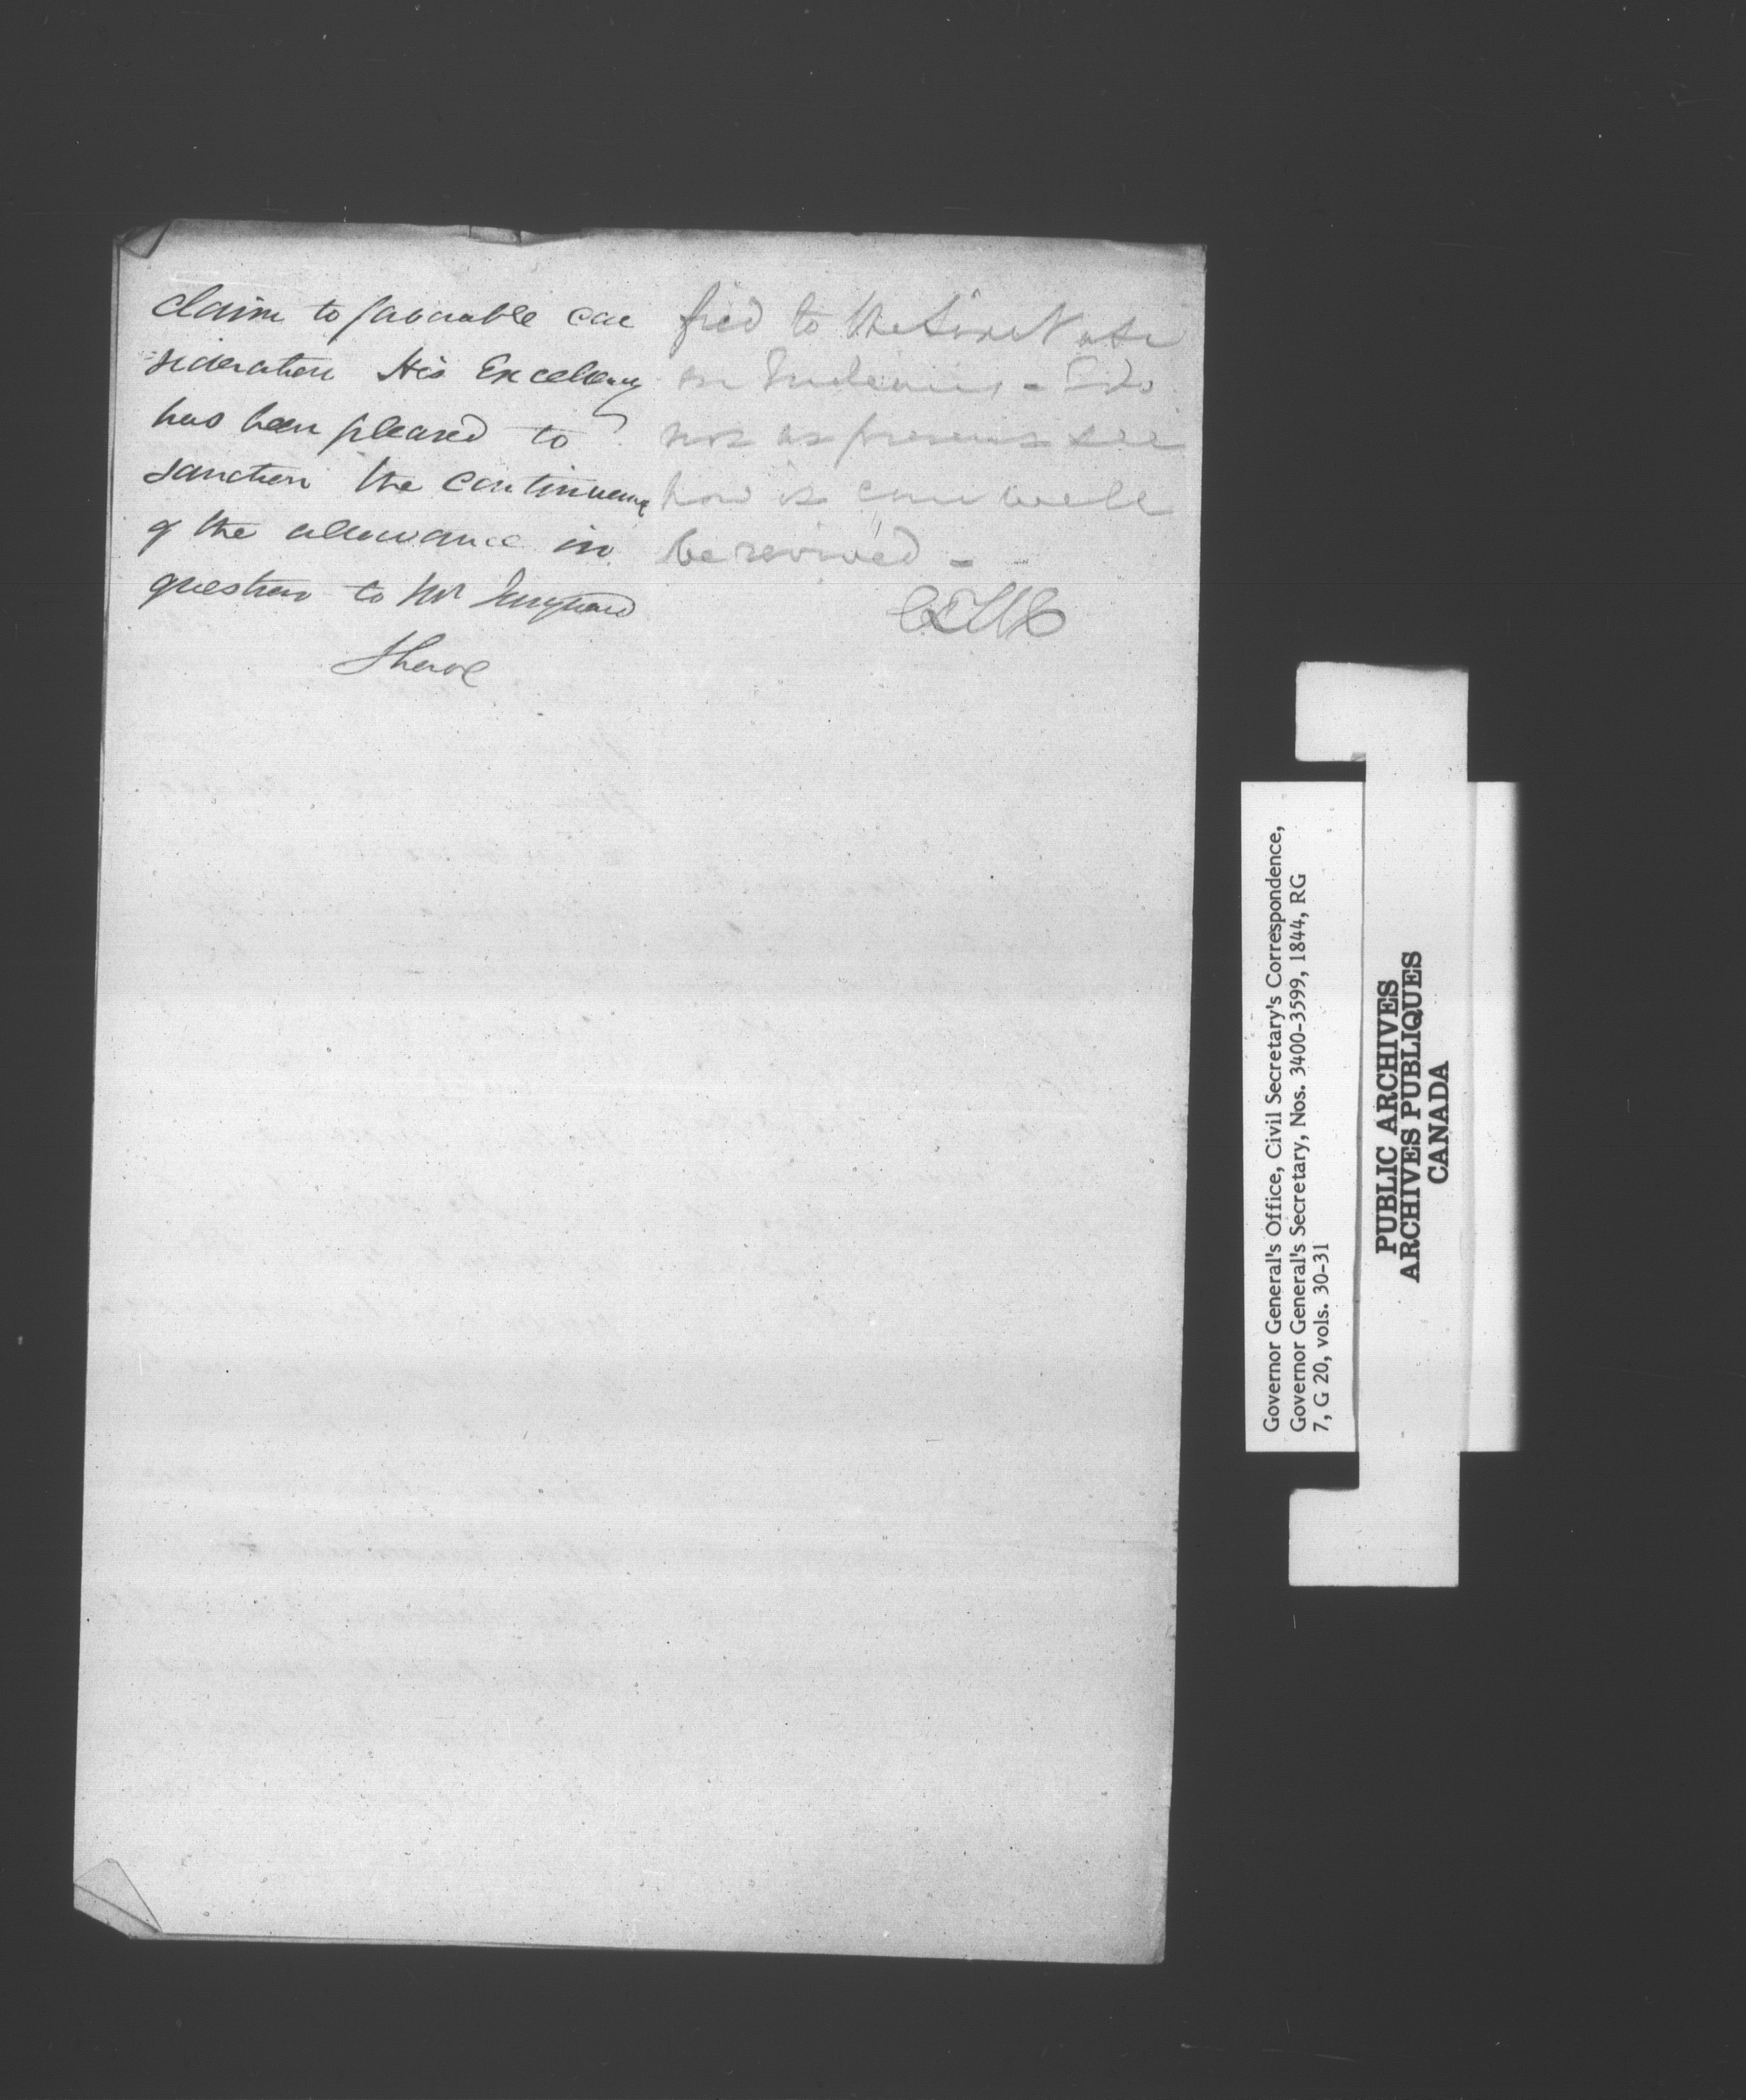 claim to favorable con
sideration His Excellency
has been pleased to
sanction the continuance
of the allowance in
question to Mr
I have
fied to the
on I do
not at present see
how it can well
be revived -
Governor General's Office, Civil Secretary's Correspondence,
Governor General's Secretary, Nos. 3400-3599, 1844, RG
7, G 20, vols. 30-31
PUBLIC ARCHIVES
ARCHIVES PUBLIQUES
CANADA